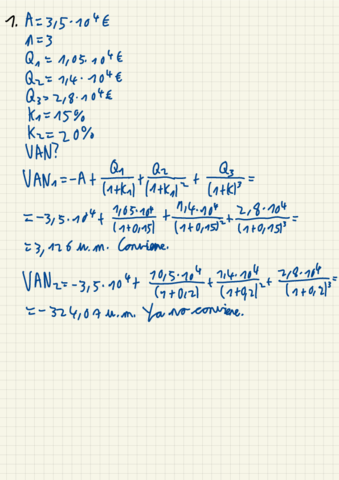 1. A=3,5·10⁴€
n=3
Q₁=1,05·10⁴€
Q₂=1,4·10⁴€
Q₃=2,8·10⁴€
K₁=15%
K₂=20%
VAN?
VAN₁=-A+ Q₁/(1+K₁) + Q₂/(1+K₁)² + Q₃/(1+K)³ =
=-3,5·10⁴+ 1,05·10⁴/(1+0,15) + 1,4·10⁴/(1+0,15)² + 2,8·10⁴/(1+0,15)³ =
=3,126 u.m. Conviene.
VAN₂=-3,5·10⁴+ 10,5·10⁴/(1+0,2) + 1,4·10⁴/(1+0,2)² + 2,8·10⁴/(1+0,2)³ =
=-324,07 u.m. Ya no conviene.